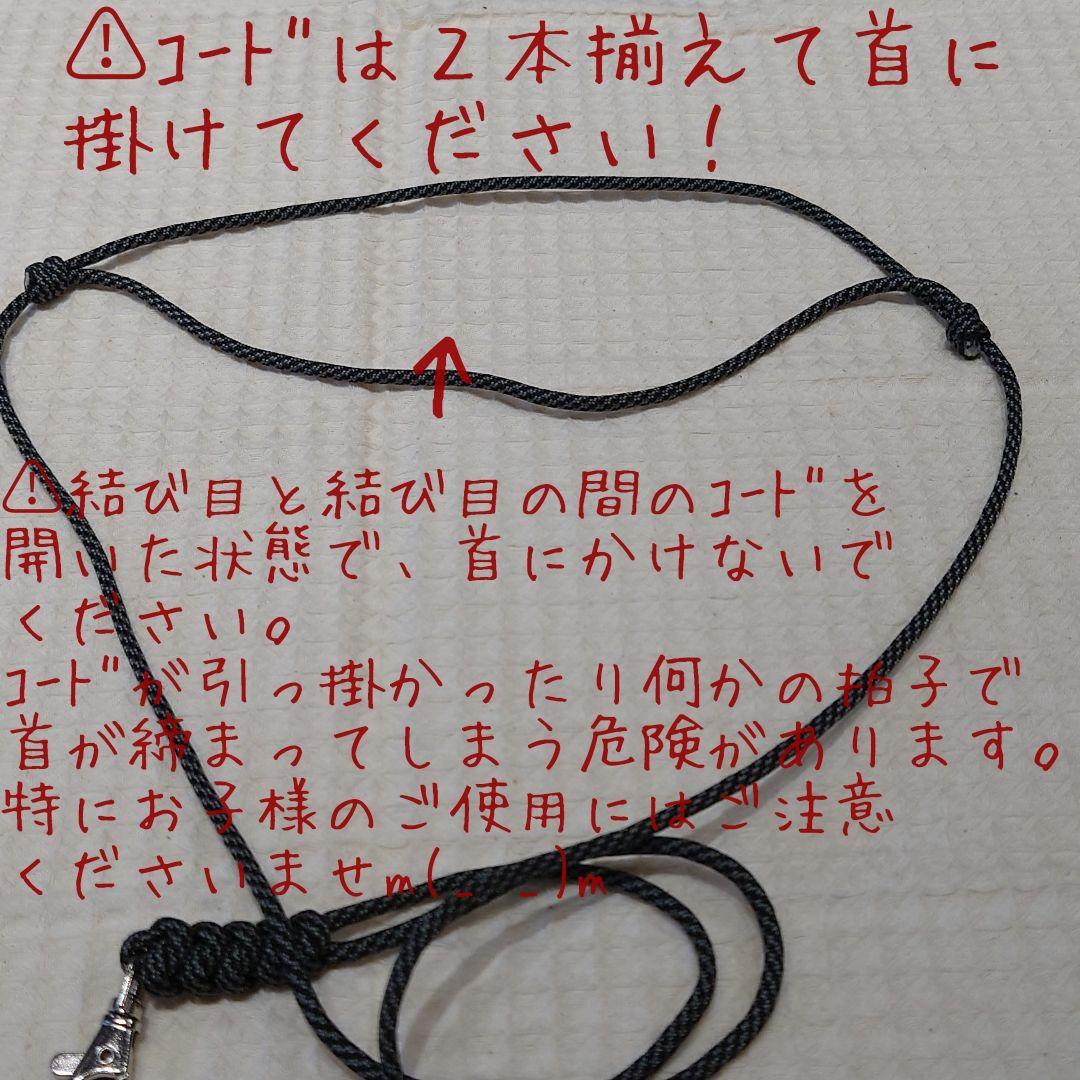 ⚠コードは2本揃えて首に
掛けてください!
⚠結び目と結び目の間のコードを
開いた状態で、首にかけないで
ください。
コードが引っ掛かったり何かの拍子で
首が締まってしまう危険があります。
特にお子様のご使用にはご注意
くださいませm(_ _)m